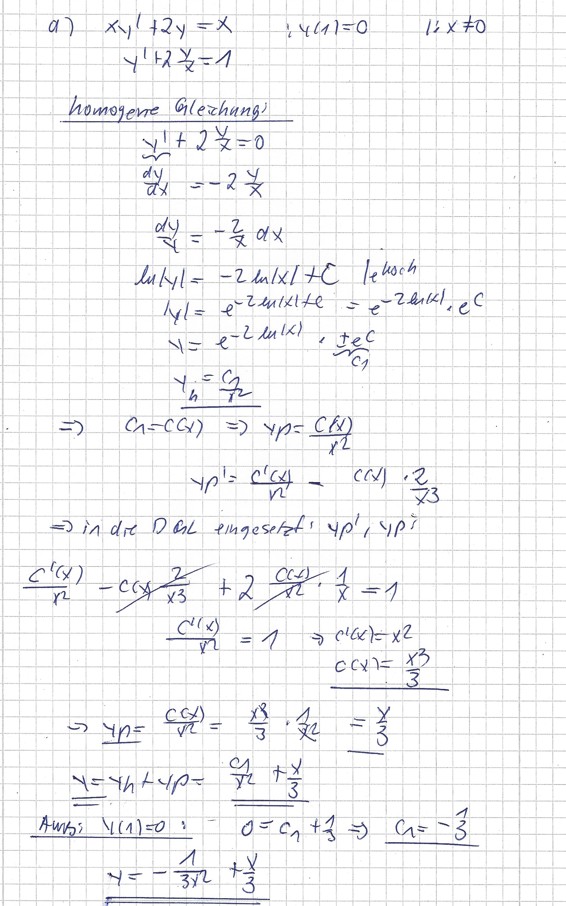 a) xy' + 2y = x ; y(1)=0 |: x≠0
y' + 2 y/x = 1
homogene Gleichung:
y' + 2 y/x = 0
dy/dx = -2 y/x
dy/y = -2/x dx
ln|y| = -2 ln|x| + C |e hoch
|y| = e^(-2 ln|x| + C) = e^(-2 ln|x|) · e^C
y = e^(-2 ln|x|) · ±e^C
C1
yh = C1/x²
⇒ C1 = C(x) ⇒ yp = C(x)/x²
yp' = C'(x)/x² - C(x) · 2/x³
⇒ in die DGL eingesetzt: yp', yp:
C'(x)/x² - C(x) 2/x³ + 2 C(x)/x² · 1/x = 1
C'(x)/x² = 1 ⇒ C'(x) = x²
C(x) = x³/3
⇒ yp = C(x)/x² = x³/3 · 1/x² = x/3
y = yh + yp = C1/x² + x/3
AWB: y(1)=0 : 0 = C1 + 1/3 ⇒ C1 = -1/3
y = - 1/3x² + x/3